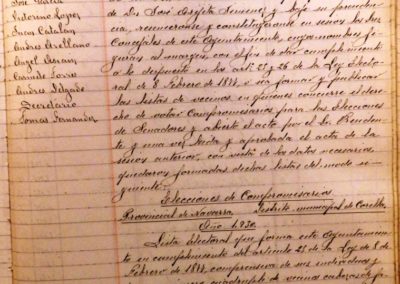 José García
Antonio López
Juan Catalán
Andrés Arellano
Angel
Carmelo
Andrés Delgado
Secretario
Tomás Fernández
de Dn. José Arjeta Jimenez y bajo su presiden-
cia, reuniéronse y constituyeronse en sesión los Sres.
Concejales de este Ayuntamiento, cuyos nombres fi-
guran al margen, con el fin de dar cumplimiento
a lo dispuesto en los artos. 25 y 26 de la Ley Electo-
ral de 8 Febrero de 1877, o sea formar y publicar
las listas de vecinos en quienes concurre el dere-
cho de votar Compromisarios para las Elecciones
de Senadores y abierto el acto por el Sr. Presiden-
te y una vez leida y aprobada el acta de la
sesión anterior, con vista de los datos necesarios,
quedaron formadas dichas listas del modo si-
guiente:
Elecciones de Compromisarios
Provincia de Navarra Distrito municipal de Corella
Año 1930
Lista electoral que forma este Ayuntamien-
to en cumplimiento del artículo 25 de la Ley de 8 de
Febrero de 1877, comprensiva de sus individuos y
cuadruplo de vecinos cabezas de fa-